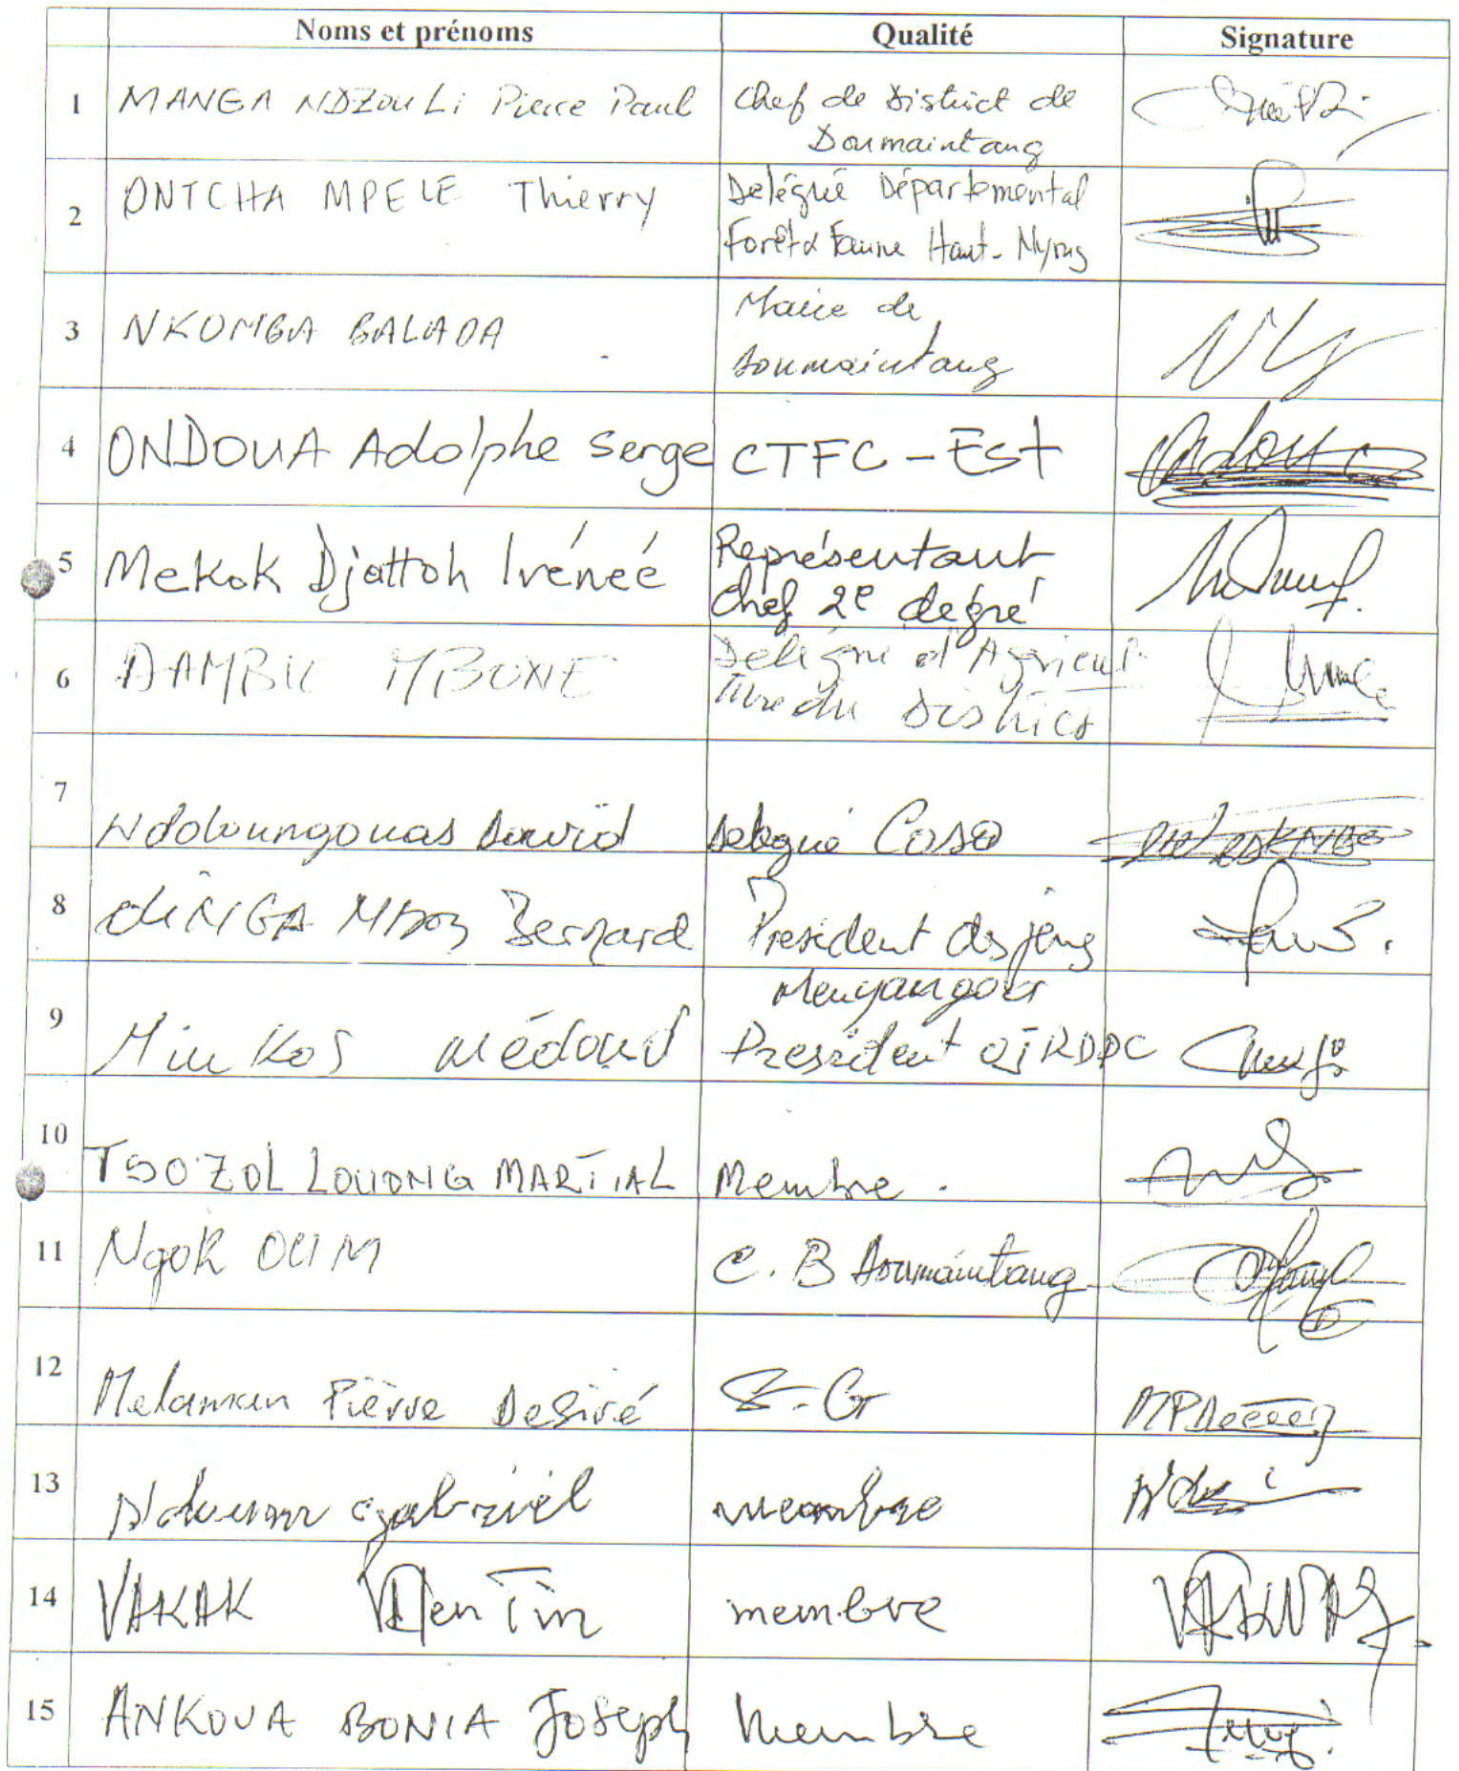 Noms et prénoms Qualité Signature
1 MANGA NDZOULi Pierre Paul Chef de District de
Doumaintang
2 ONTCHA MPELE Thierry Delégué Départemental
Forêt & Faune Haut-Nyong
3 NKOMBA BALADA Maire de
Doumaintang
4 ONDOUA Adolphe Serge CTFC-Est
5 Mekok Djattoh Irénéé Représentant
Chef 2e degré
6 DAMBIL MBONE Délégué d'Agricul-
ture du District
7 Ndoloungouas David Delegué
8 Bernard President des jeng
Menyangolo
9 Minkos Médard President OJRDPC
10 TSOZOL LOUONG MARTIAL Membre.
11 Ngok OLIM C.B Doumaintang
12 Pièrre Desiré S.G
13 gabriel membre
14 VAKAK VALenTin membre
15 ANKOUA BONIA Joseph Membre